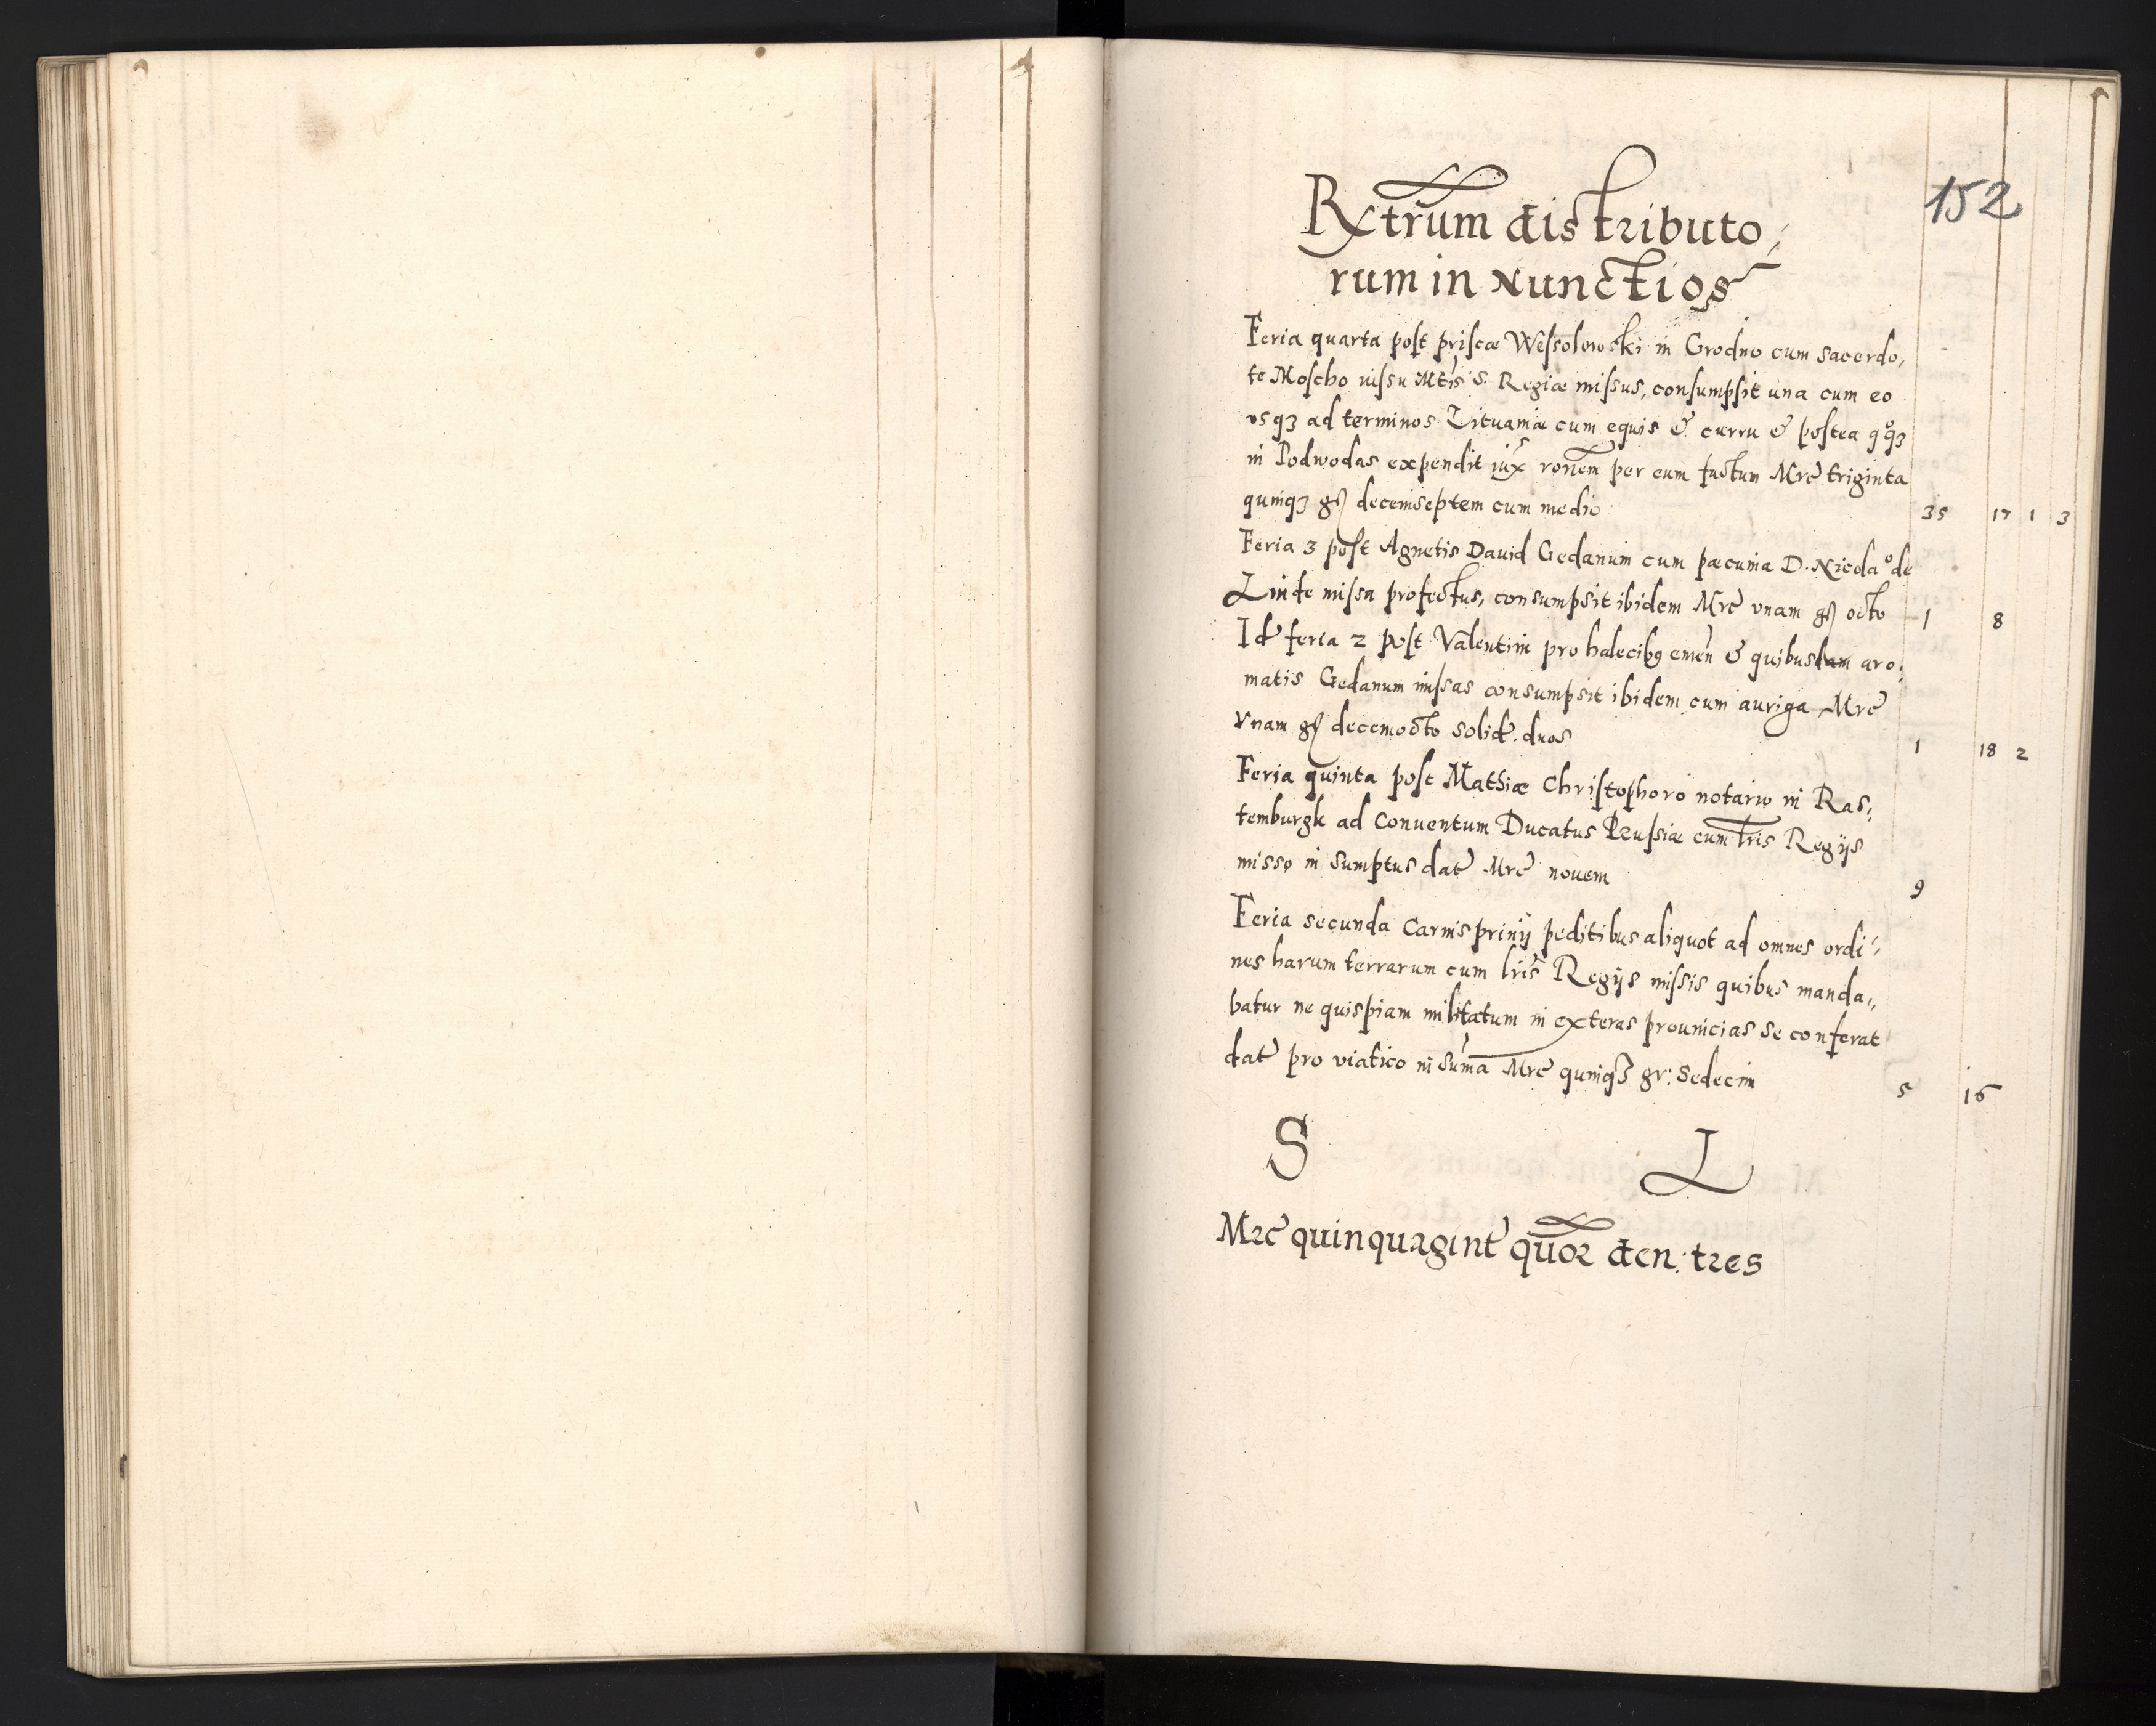 152
Rxtrum distributo,
rum in Nunctios
Feria quarta post priscæ Wessolowski in Grodno cum sacerdo,
te Moscho iussu Mtis S. Regiæ missus, consumpsit una cum eo
usqꝫ ad terminos Lituaniæ cum equis & curru & postea qͦqꝫ
in Podwodas expendit iux̄ ronem per eum factum Mrc triginta
quinqꝫ gꝭ decemseptem cum medio 35 17 1 3
Feria 3 post Agnetis Dauid Gedanum cum pæcunia D. Nicolaͦ de
Linde missa profectus, consumpsit ibidem Mrc vnam gꝭ octo 1 8
Id feria 2 post Valentini pro halecibꝯ emen & quibusdam aro,
matis Gedanum missas consumpsit ibidem cum auriga Mrc
vnam gꝭ decemocto solid. duos 1 18 2
Feria quinta post Mathiæ Christophoro notario in Ras,
temburgk ad Conuentum Ducatus Prussiæ cum lris Regijs
misso in sumptus dat Mrc nouem 9
Feria secunda Carnispriuij peditibus aliquot ad omnes ordi,
nes harum terrarum cum lris Regijs missis quibus manda,
batur ne quispiam militatum in exteras prouincias se conferat
dat pro viatico in suma Mrc quinqꝫ gr: sedecim 5 16
S L
Mrc quinquagint quor den: tres